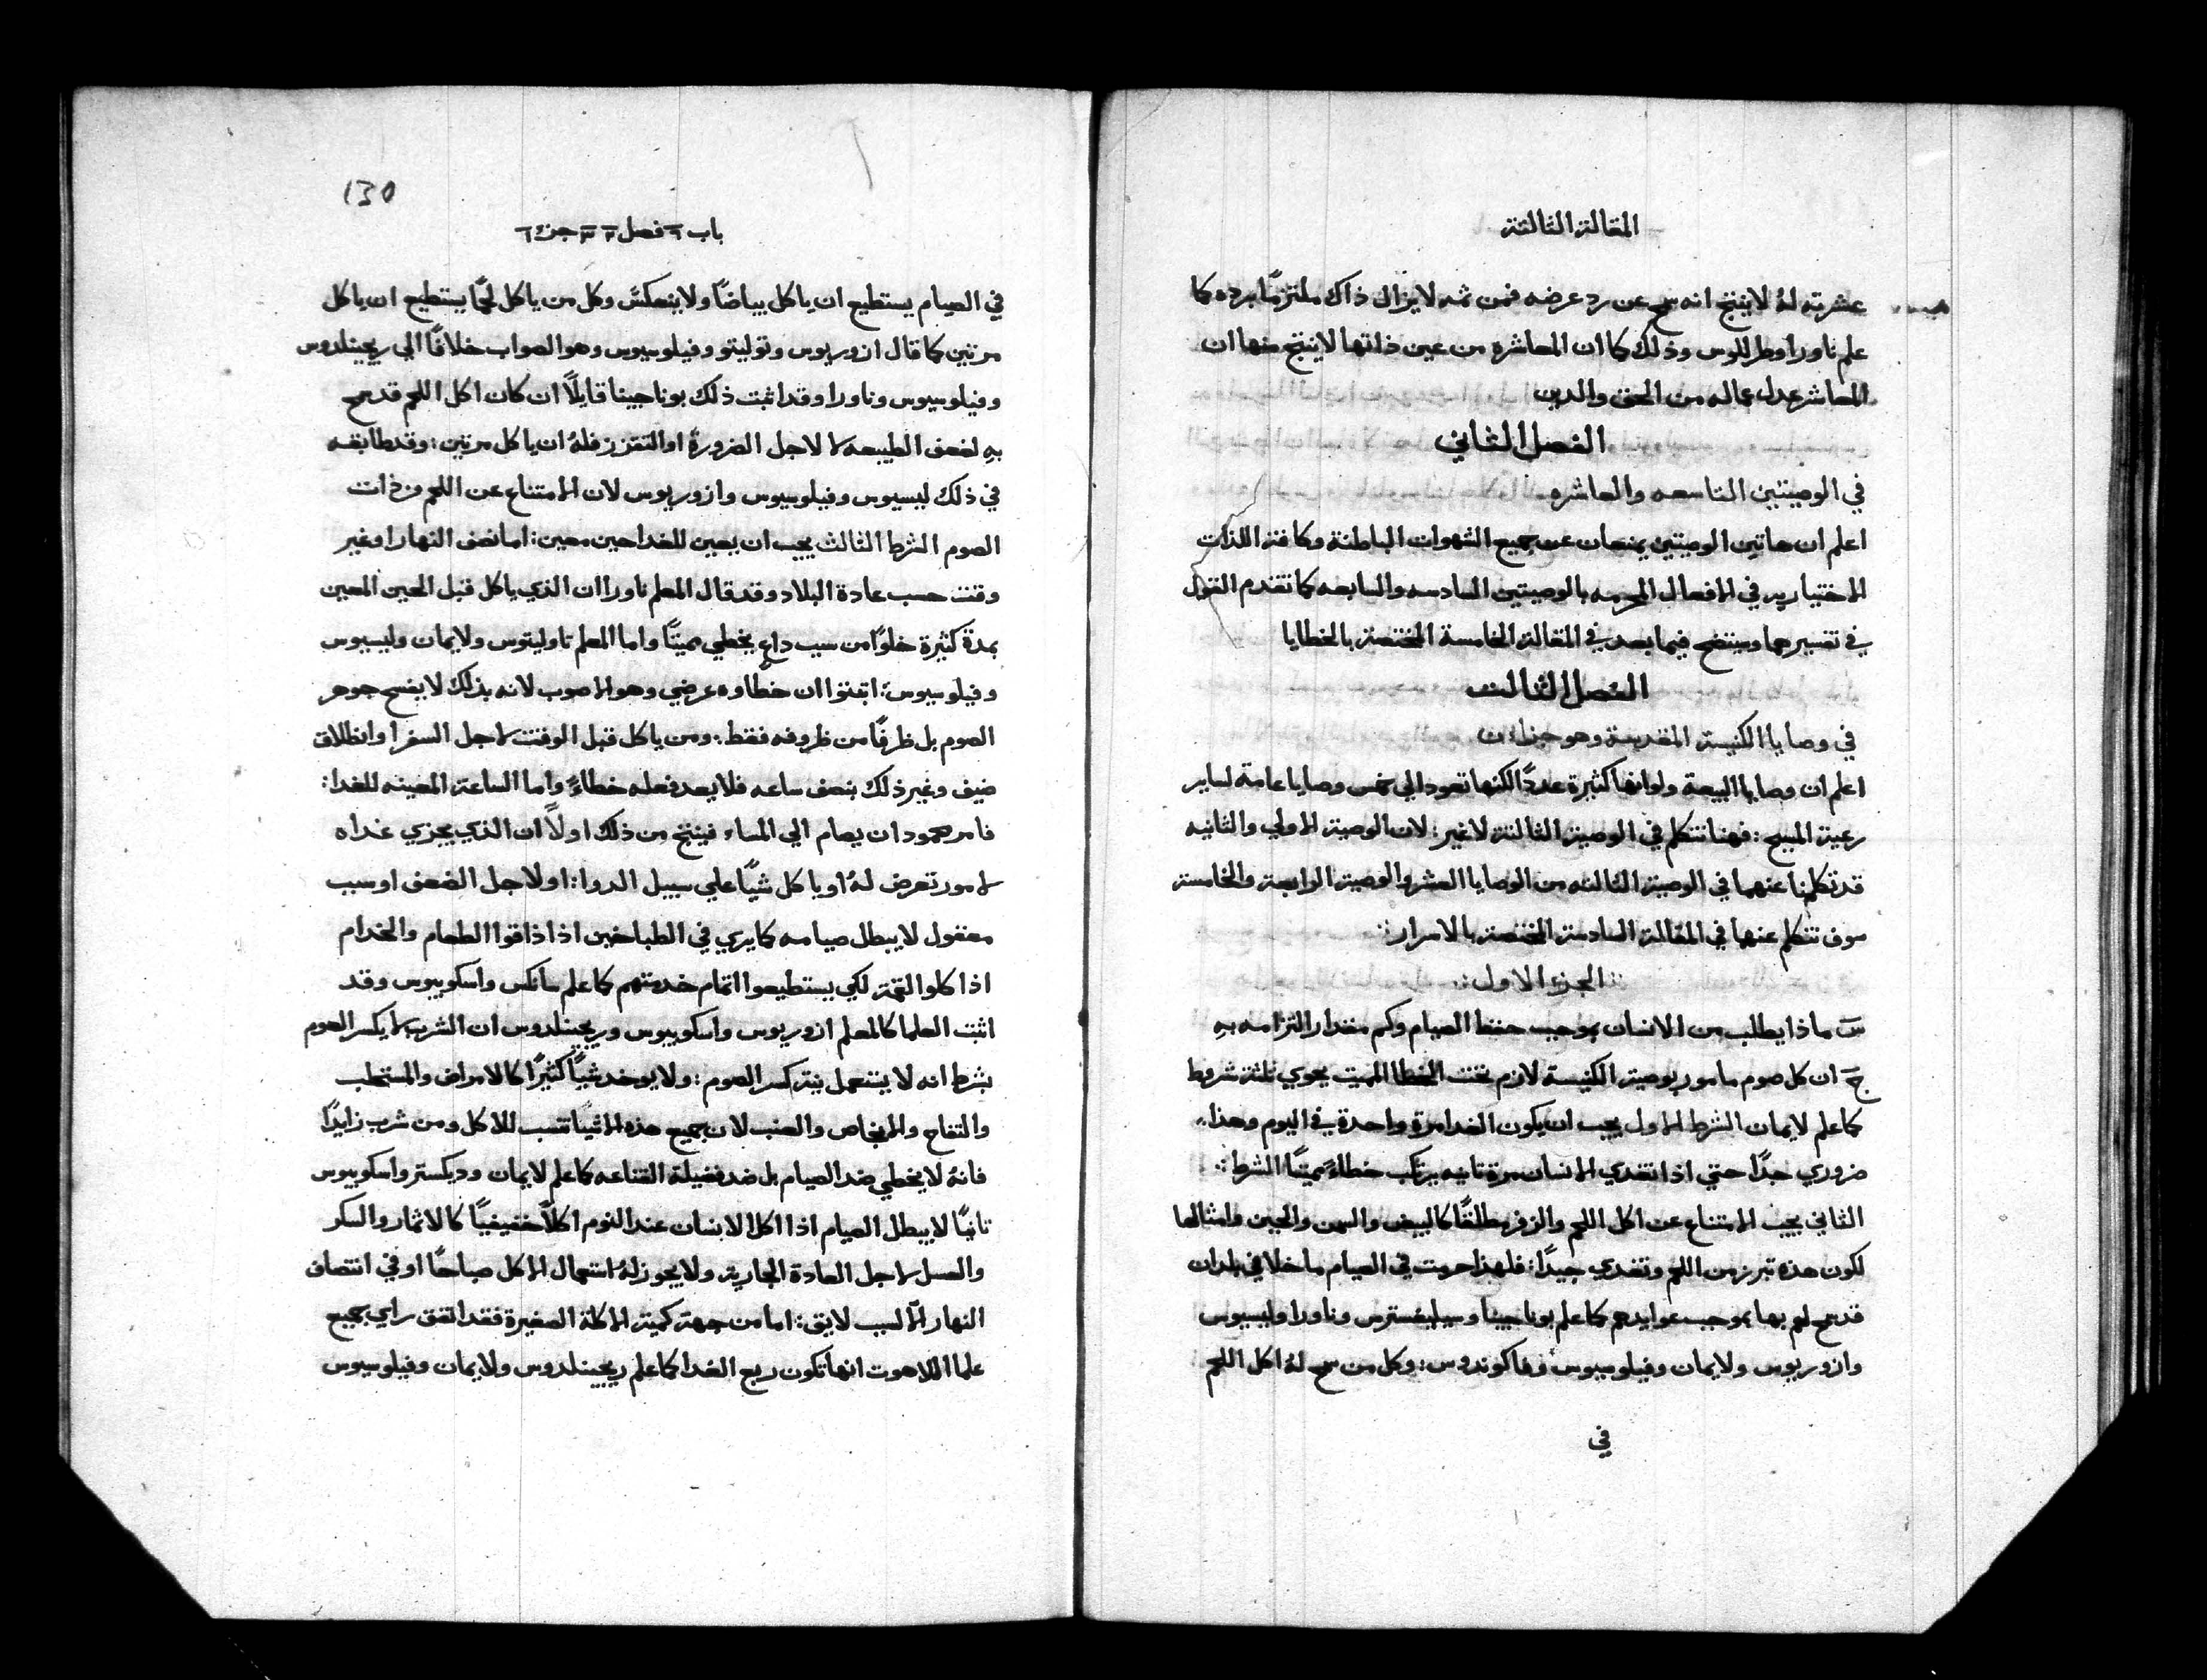 المقالة الثالثة
عشرته لهُ لا ينتج انه سمح عن رد عرضه فمن ثمه لا يزال ذاك ملتزمًا برده كما
علم ناورا وطرللوس وذلك كما ان المعاشره من عين ذاتها لا ينتج منها ان
المعاشر عدل عماله من الحق والدين
الفصل الثاني
في الوصيتين التاسعه والعاشره
اعلم ان هاتين الوصيتين يمنعان عن جميع الشهوات الباطنة وكافة اللذات
الاختياريه في الافعال المحرمه بالوصيتين السادسه والسابعه كما تقدم القول
في تفسيرهما وسيتضح فيما بعد في المقالة الخامسة المختصة بالخطايا
الفصل الثالث
في وصايا الكنيسة المقدسة وهو جزاان
اعلم ان وصايا البيعة ولو انها كثيرة عددًا لكنها تعود الي خمس وصايا عامة لساير
رعية المسيح : فهنا نتكلم في الوصية الثالثة لا غير : لان الوصية الاولي والثانيه
قد تكلمنا عنهما في الوصية الثالثه من الوصايا العشر والوصية الرابعة والخامسة
سوف نتكلم عنها في المقالة السادسة المختصة بالاسرار
الجزء الاول
سَ ماذا يطلب من الانسان بموجب حفظ الصيام وكم مقدار التزامه بهِ
جَ ان كل صوم مامور بوصية الكنيسة لازم تحت الخطا المميت يحوي ثلثة شروط
كما علم لايمان الشرط الاول يجب ان يكون الغدا مرة واحدة في اليوم وهذا
ضروري جدًا حتي اذا تغدي الانسان مرة ثانيه يرتكب خطاءً مميتًا الشرط
الثاني يجب الامتناع عن اكل اللحم والزفر مطلقًا كالبيض والسمن والجبن وامثالها
لكون هذه تبرز من اللحم وتغدي جيدًا : فلهذا حرمت في الصيام ما خلا في بلدان
قد سمح لهم بها بموجب عوايدهم كما علم بوناجينا وسيليفسترس وناورا وليسيوس
وازوريوس ولايمان وفيلوسيوس وفاكوندوس : وكل من سمح لهُ اكل اللحم
في
130
باب ٦ فصل ٢ ٣ جزء ١
في الصيام يستطيع ان ياكل بياضًا ولا ينعكسَّ وكل من ياكل لحمًا يستطيع ان ياكل
مرتين كما قال ازوريوس وتوليتو وفيلوسيوس وهو الصواب خلافًا الي ريجينلدوس
وفيلوسيوس وناورا وقد اثبت ذلك بوناجينا قايلًا ان كان اكل اللحم قد سمح
بهِ لضعف الطبيعه لا لاجل الضرورة او التقزز فلهُ ان ياكل مرتين : وقد طابقه
في ذلك ليسيوس وفيلوسيوس وازوريوس لان الامتناع عن اللحم من ذات
الصوم الشرط الثالث يجب ان يعين للغدا حين معين : اما نصف النهار او غير
وقت حسب عادة البلاد وقد قال المعلم ناورا ان الذي ياكل قبل الحين المعين
بمدة كثيرة خلوًا من سبب داعٍ يخطي مميتًا واما المعلم تاوليتوس ولايمان وليسيوس
وفيلوسيوس : اتفقوا ان خطاوه عرضي وهو الاصوب لانه بذلك لا يفسح جوهر
الصوم بل ظرفًا من ظروفه فقط : ومن ياكل قبل الوقت لاجل السفر او انطلاق
ضيف وغير ذلك بنصف ساعه فلا يعد فعله خطاءً واما الساعة المعينه للغدا :
فامر محمود ان يصام الي المساء فينتج من ذلك اولًا ان الذي يجزي غداه
لامور تعرض لهُ او ياكل شيًا علي سبيل الدوا : او لاجل الضعف او سبب
معقول لا يبطل صيامه كما يري في الطباخين اذا ذاقوا الطعام والخدام
اذا كلوا لقمة لكي يستطيعوا اتمام خدمتهم كما علم سانكس واسكوبيوس وقد
اثبت العلما كالمعلم ازوريوس واسكوبيوس وريجينلدوس ان الشرب لا يكسر الصوم
بشرط انه لا يستعمل بنية كسر الصوم : ولا يوخد شيًا كثيرًا كالامراق والمستحلب
والتفاح والانجاص والعنب لان جميع هذه الاشيا تنسب للاكل ومن شرب زايدًا
فانهُ لا يخطي ضد الصيام بل ضد فضيلة القناعه كما علم لايمان وديكستر واسكوبيوس
ثانيًا لا يبطل الصيام اذا اكل الانسان عند النوم اكلًا خفيفيًا كالاثمار والسكر
والعسل لاجل العادة الجارية ولا يجوز لهُ استعمال الاكل صباحًا او في انتصاف
النهار الَّا لسبب لايق : اما من جهة كمية الاكلة الصغيرة فقد اتفق راي جميع
علما اللاهوت انها تكون ربع الغدا كما علم ريجينلدوس ولايمان وفيلوسيوس